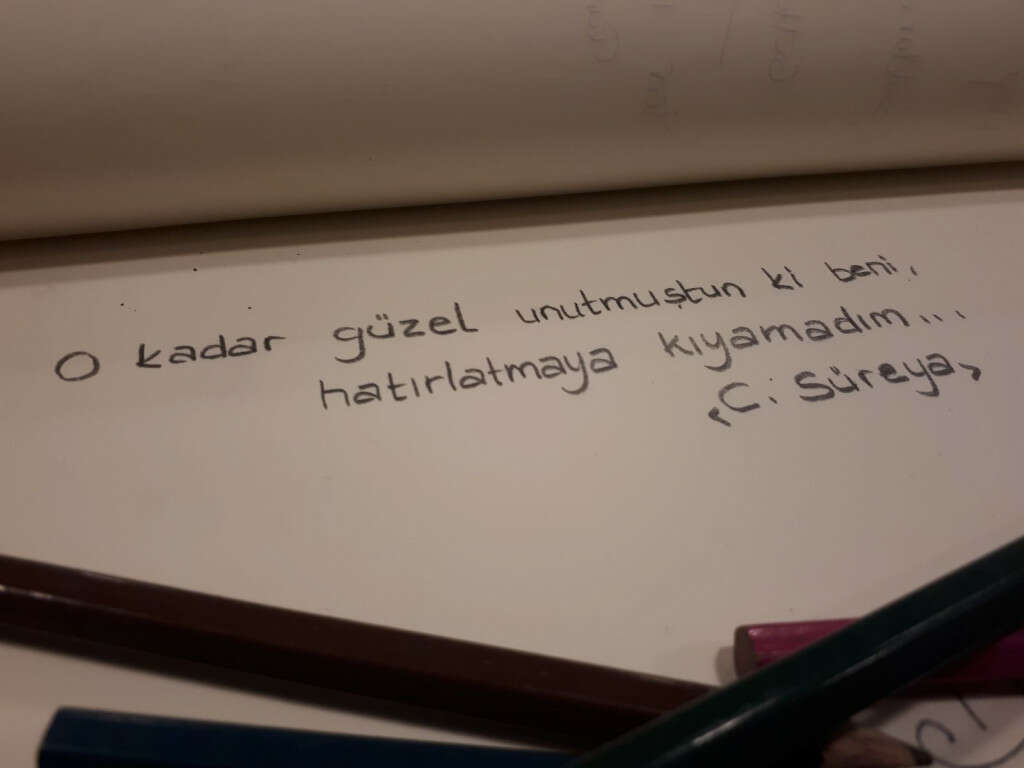 O kadar güzel unutmuştun ki beni,
hatırlatmaya kıyamadım...
<C. Süreya>